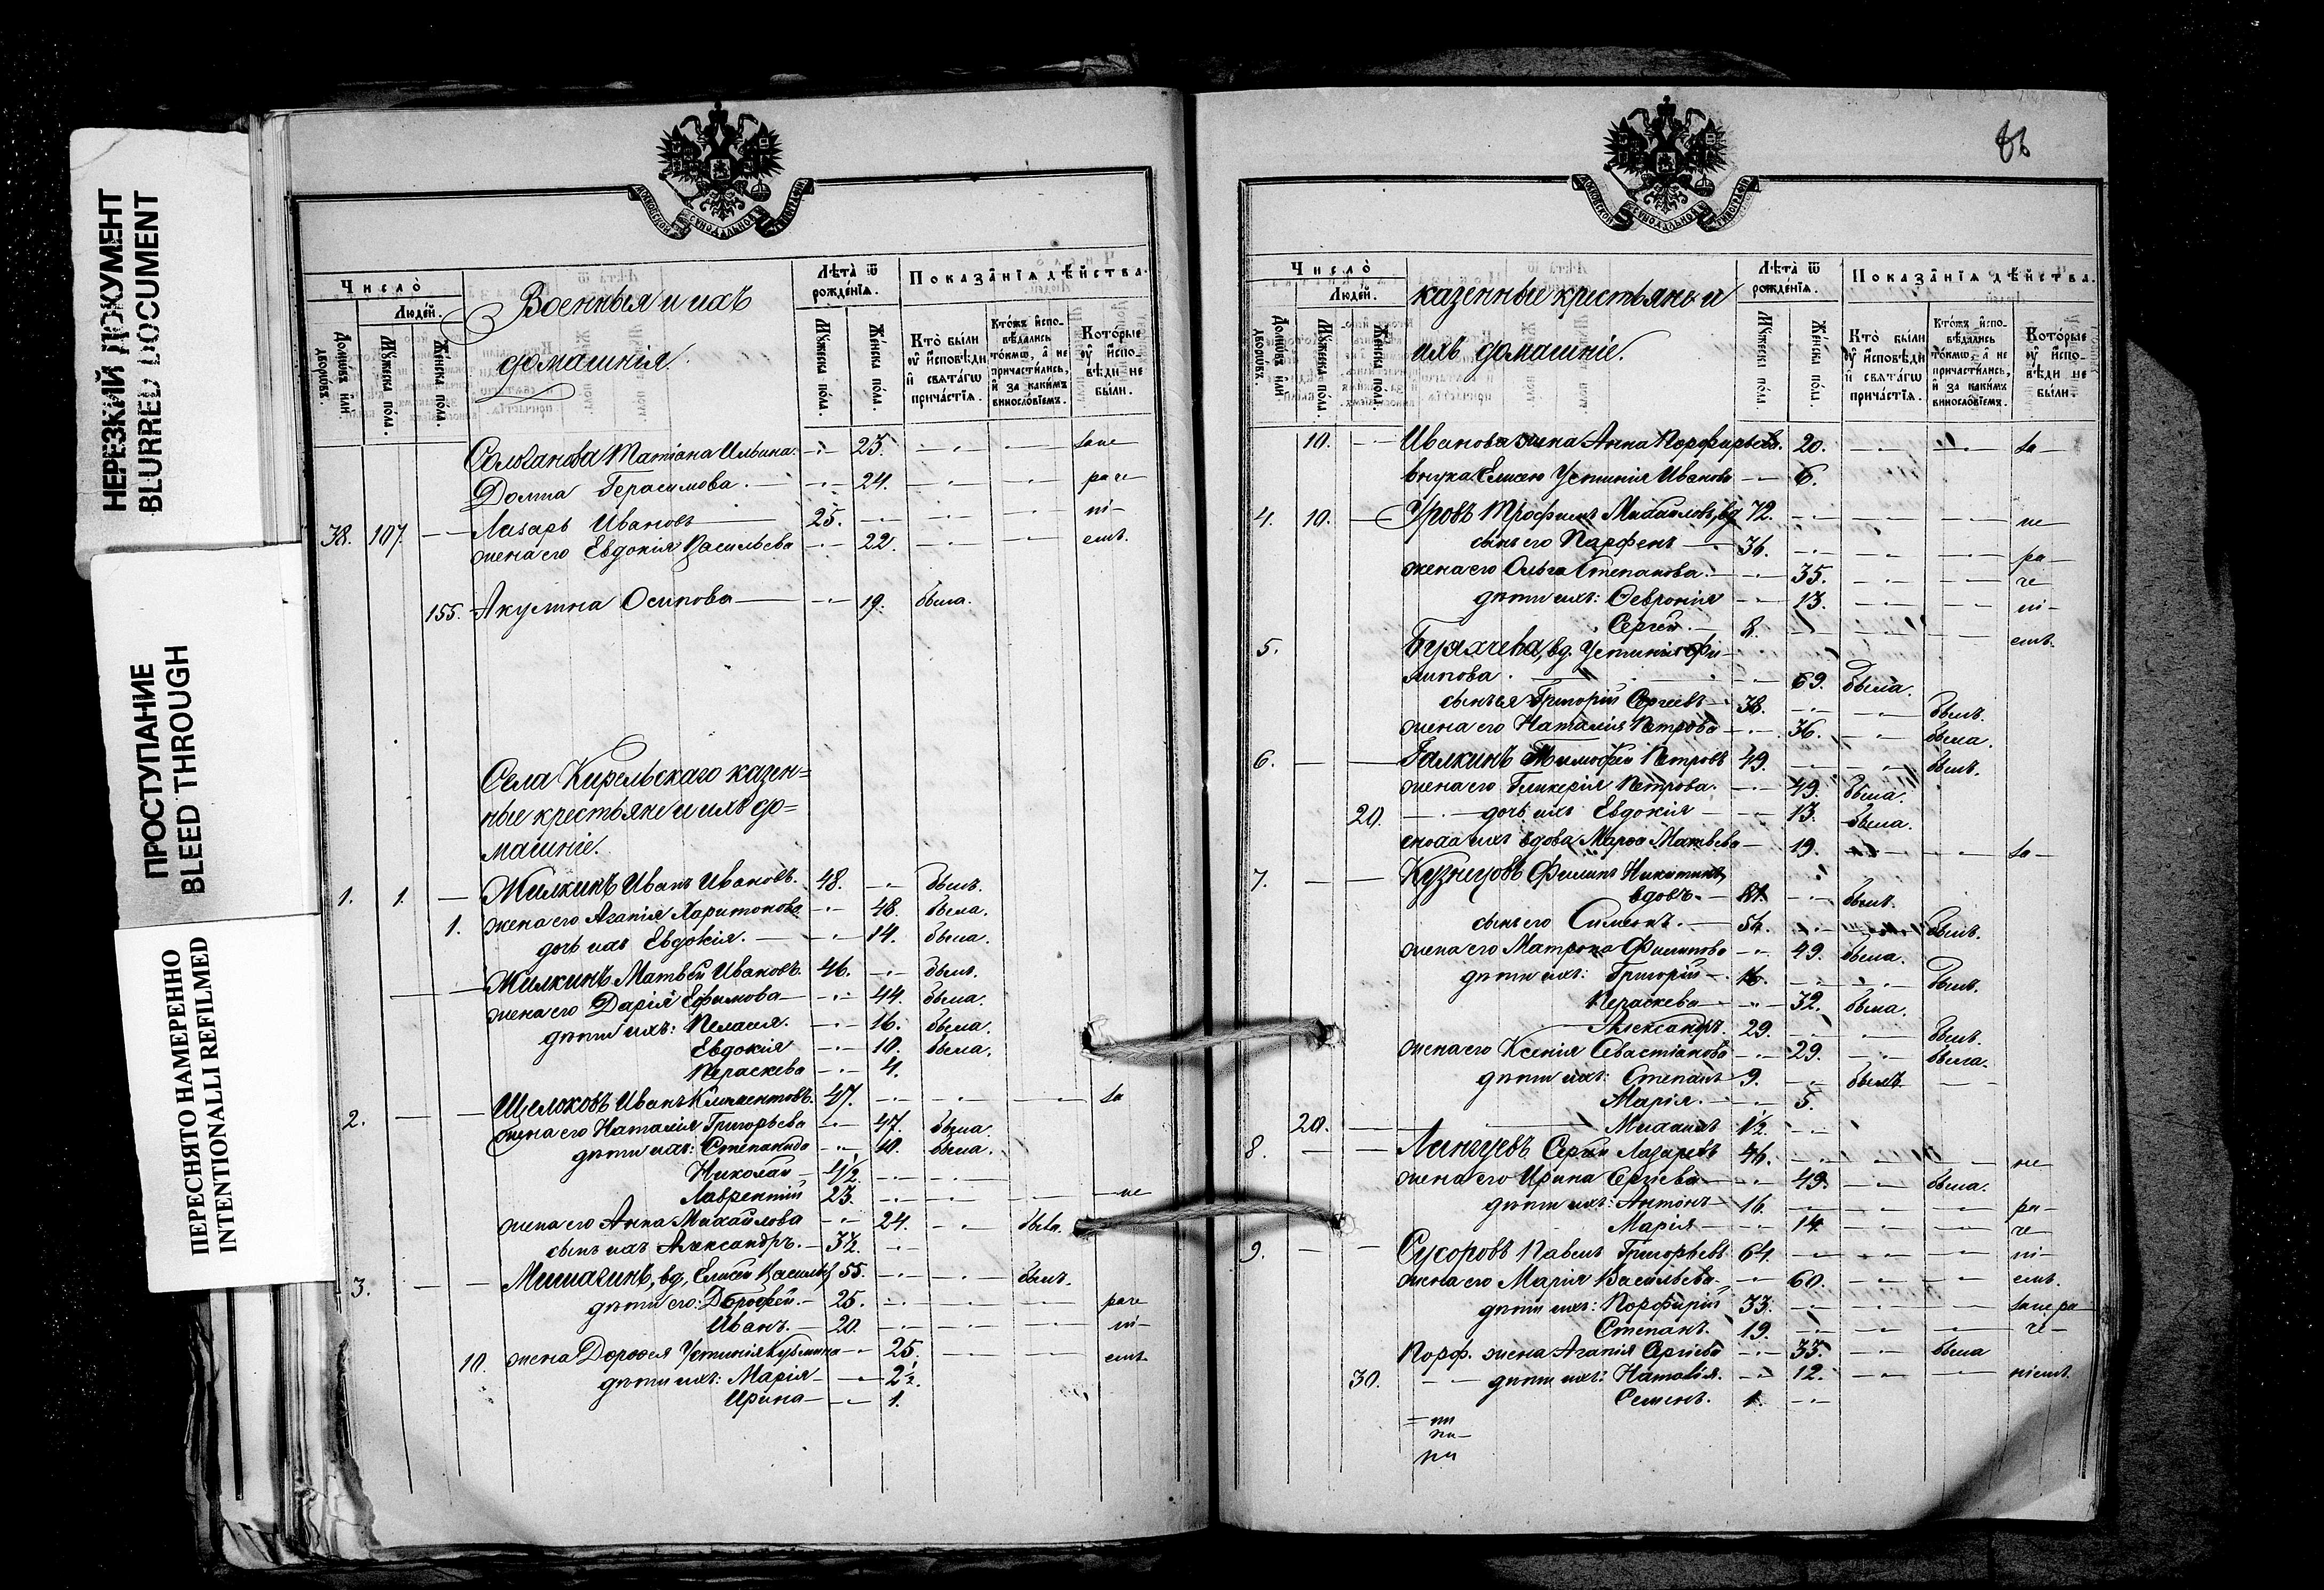 НЕРЕЗКИЙ ДОКУМЕНТ
BLURRED DOCUMENT
ПРОСТУПАНИЕ
BLEED THROUGH
ПЕРЕСНЯТО НАМЕРЕННО
INTENTIONALLI REFILMED
МОСКОВСКОЙ СѴНОДАЛЬНОЙ ТИПОГРАФІИ
Число̀
Людей.
Домѡвъ или дворѡвъ.
Мꙋжеска пола.
Женска пола.
Военныя и ихъ
домашнія.
Лѣта̀ ѿ рождéнїѧ.
Мꙋжеска пола.
Женска пола.
Показа̑нїѧ дѣ́йства.
Кто̀ бы́ли ᲂу҆ и҆сповѣди и҆ свѧта́гѡ прича́стїѧ.
Кто́жъ и҆спо-вѣдались то́кмѡ, а҆ не причасти́лись, и҆ за каки́мъ винословїемъ.
Кото́рые ᲂу҆ и҆спо-вѣди не бы́ли.
Салчанова Матіана Ильина. 23. за не
Домна Герасимова. 24. раче
38. 107. Лазарь Ивановъ 25. ні-
жена его Евдокія Васильева 22. емъ.
155. Акулина Осипова 19. была.
Села Кирельскаго казен=
ные крестьяне и ихъ до=
машніе.
1. 1. Жилкинъ Иванъ Ивановъ. 48. былъ.
1. жена его Агапія Харитонова 48. была.
дочь ихъ Евдокія. 14. была.
Жилкинъ Матвѣй Ивановъ. 46. былъ.
жена его Дарія Ефимова 44. была.
дѣти ихъ: Пелагія. 16. была.
Евдокія 10. была.
Параскева 4.
2. Щелоковъ Иванъ Климентовъ. 47. за
жена его Наталія Григорьева 47. была.
дѣти ихъ: Степанида 10. была.
Николай 4½
Лаврентій 23. не
жена его Анна Михайлова 24. была.
сынъ ихъ Александръ. 3½.
3. Мишагинъ, вд, Елисей Васильев 55. былъ.
дѣти его: Дорофей. 25. раче
Иванъ. 20. ні-
10. жена Дорофея Устинія Кузьмина 25. емъ
дѣти ихъ: Марія 2½.
Ирина 1.
МОСКОВСКОЙ СѴНОДАЛЬНОЙ ТИПОГРАФІИ
Число̀
Людей.
Домѡвъ или дворѡвъ.
Мꙋжеска пола.
Женска пола.
казенные крестьяне и
ихъ домашніе.
Лѣта̀ ѿ рождéнїѧ.
Мꙋжеска пола.
Женска пола.
Показа̑нїѧ дѣ́йства.
Кто̀ бы́ли ᲂу҆ и҆сповѣди и҆ свѧта́гѡ прича́стїѧ.
Кто́жъ и҆спо-вѣдались то́кмѡ, а҆ не причасти́лись, и҆ за каки́мъ винословїемъ.
Кото́рые ᲂу҆ и҆спо-вѣди не бы́ли.
10. Иванова жена Анна Порфирьева. 20. за
внука Елисею Устинія Иванова 6.
4. 10. Уровъ Трофимъ Михайловъ, вд 72. не
сынъ его Парфенъ 36. ра
жена его Ольга Степанова. 35. че
дѣти ихъ: Февронія 13. ні-
Сергѣй. 8. емъ.
5. вд. Устинія Фи-
липова. 69. была.
сынъ ея Григорій Сергѣевъ 38. былъ.
жена его Наталія Петрова 36. была.
6. Галкинъ Тимофей Петровъ 49. былъ.
жена его Гликерія Петрова. 49. была.
20. дочь ихъ Евдокія 13. была.
сноха ихъ вдова Марѳа Матвѣева 19. за
7. Кузнецовъ Филипъ Никитинъ,
вдовъ. 81. былъ.
сынъ его Симеонъ. 54. былъ.
жена его Матрона Филипова 49. была.
дѣти ихъ: Григорій 16. былъ.
Параскева 32. была.
Александръ. 29. былъ.
жена его Ксенія Севастіанова 29. была.
дѣти ихъ: Степанъ 9. былъ
Марія. 5.
20. Михаилъ 1½.
8. Лингуевъ Сергѣй Лазаревъ 46. не
жена его Ирина Сергѣева 49. была.
дѣти ихъ: Антонъ 16. ра-
Марія 14. че
9. Сусоровъ Павелъ Григорьевъ 64. ні-
жена его Марія Васильева 60. емъ.
дѣти ихъ: Порфирій 33. зане ра
Степанъ. 19. че
Порф. жена Агапія Сергѣева 35. была
30. дѣти ихъ: Наталія. 12. ніемъ.
Семенъ. 1.